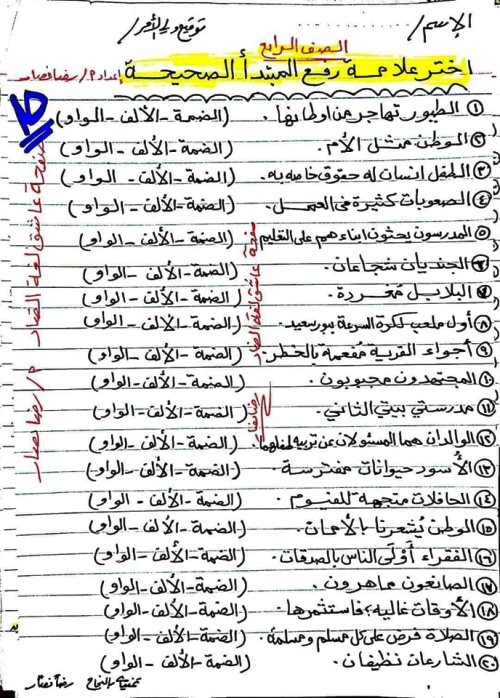 الإسم/ توقيع ولي الأمر/
الصف الرابع
اختر علامة رفع المبتدأ الصحيحة إعداد م/ رضا نصار
① الطيور تهاجر من أوطانها. (الضمة - الألف - الواو)
② الوطن مثل الأم. (الضمة - الألف - الواو)
③ الطفل إنسان له حقوق خاصه به. (الضمة - الألف - الواو)
④ الصعوبات كثيرة في العمل. (الضمة - الألف - الواو)
⑤ المدرسون يحثون ابناءهم على التعليم (الضمة - الألف - الواو)
⑥ الجنديان شجاعان. (الضمة - الألف - الواو)
⑦ البلابل مغردة. (الضمة - الألف - الواو)
⑧ أول ملعب لكرة السرعة ببورسعيد. (الضمة - الألف - الواو)
⑨ أجواء القرية مفعمة بالخطر. (الضمة - الألف - الواو)
⑩ المجتهدون محبوبون. (الضمة - الألف - الواو)
⑪ مدرستي بيتي الثاني. (الضمة - الألف - الواو)
⑫ الوالدان هما المسئولان عن تربية أطفالهما. (الضمة - الألف - الواو)
⑬ الأسود حيوانات مفترسة. (الضمة - الألف - الواو)
⑭ الحافلات متجهة للفيوم. (الضمة - الألف - الواو)
⑮ الوطن يُشعرنا بالأمان. (الضمة - الألف - الواو)
⑯ الفقراء أَوْلَى الناس بالصدقات. (الضمة - الألف - الواو)
⑰ الصانعون ماهرون. (الضمة - الألف - الواو)
⑱ الأوقات غاليه؛ فاستثمرها. (الضمة - الألف - الواو)
⑲ الصلاة فرض على كل مسلم ومسلمة. (الضمة - الألف - الواو)
⑳ الشارعان نظيفان. (الضمة - الألف - الواو)
تمنياتي بالنجاح رضا نصار
صفحة عاشق لغة الضاد م/ رضا نصار
صفحة عاشق لغة الضاد
رضا نصار